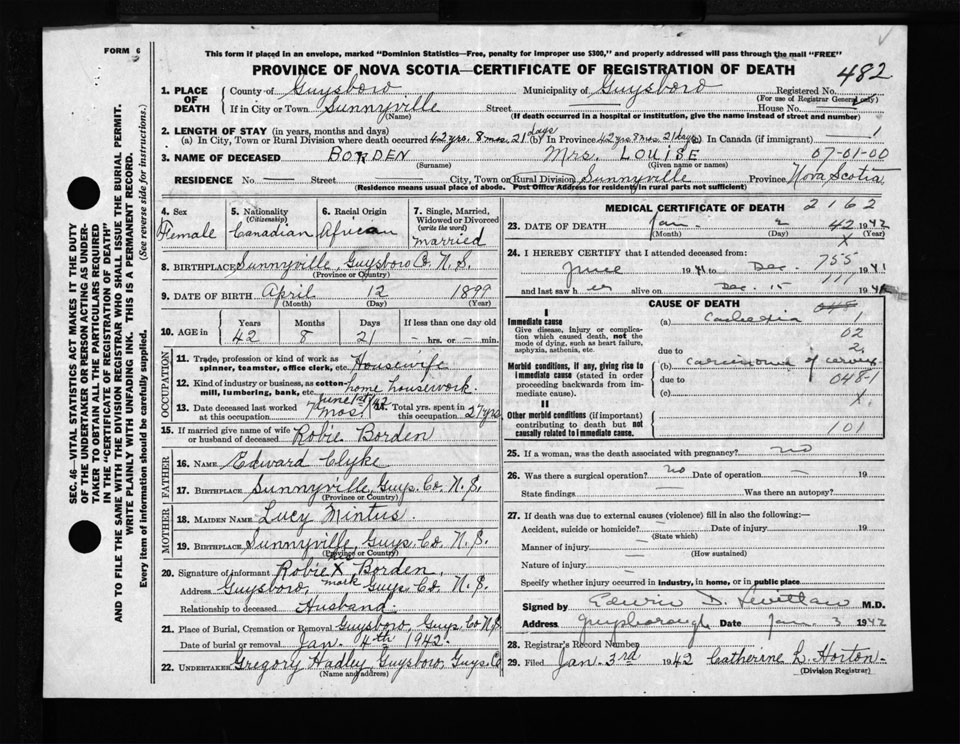 FORM 6
This form if placed in an envelope, marked "Dominion Statistics—Free, penalty for improper use $300," and properly addressed will pass through the mail "FREE"
PROVINCE OF NOVA SCOTIA—CERTIFICATE OF REGISTRATION OF DEATH 482
1. PLACE OF DEATH
County of Guysboro Municipality of Guysboro Registered No.
(For use of Registrar General only)
If in City or Town Sunnyville Street — House No. —
(Name) (If death occurred in a hospital or institution, give the name instead of street and number)
2. LENGTH OF STAY (in years, months and days)
(a) In City, Town or Rural Division where death occurred 42 yrs. 8 mos. 21 days (b) In Province 42 yrs 8 mos. 21 days (c) In Canada (if immigrant) —
3. NAME OF DECEASED BORDEN Mrs. LOUISE 07-01-00
(Surname) (Given name or names)
RESIDENCE No. — Street — City, Town or Rural Division Sunnyville Province Nova Scotia
(Residence means usual place of abode. Post Office Address for residents in rural parts not sufficient)
4. Sex Female
5. Nationality (Citizenship) Canadian
6. Racial Origin African
7. Single, Married, Widowed or Divorced (write the word) married
8. BIRTHPLACE Sunnyville, Guysboro Co. N.S.
(Province or Country)
9. DATE OF BIRTH April 12 1899
(Month) (Day) (Year)
10. AGE in Years Months Days If less than one day old
42 8 21 — hrs. or — min.
OCCUPATION
11. Trade, profession or kind of work as spinner, teamster, office clerk, etc. Housewife
12. Kind of industry or business, as cotton-mill, lumbering, bank, etc. home housework.
13. Date deceased last worked at this occupation 7 mos.
14. Total yrs. spent in this occupation 27 yrs
15. If married give name of wife or husband of deceased Robie Borden
FATHER
16. NAME Edward Clyke
17. BIRTHPLACE Sunnyville, Guys. Co. N.S.
(Province or Country)
MOTHER
18. MAIDEN NAME Lucy Mintus.
19. BIRTHPLACE Sunnyville, Guys. Co. N.S.
(Province or Country)
20. Signature of informant Robie X Borden.
mark
Address Guysboro, Guys. Co. N.S.
Relationship to deceased Husband.
21. Place of Burial, Cremation or Removal Guysboro, Guys. Co N.S.
Date of burial or removal Jan. 4th 1942.
22. UNDERTAKER Gregory Hadley, Guysboro, Guys. Co
(Name and address)
MEDICAL CERTIFICATE OF DEATH 2162
23. DATE OF DEATH Jan. 2 42 1942
(Month) (Day) (Year)
X
24. I HEREBY CERTIFY that I attended deceased from:
June 1941 to Dec. 1941
755
111
and last saw her alive on Dec. 15 194
CAUSE OF DEATH
I
Immediate cause
Give disease, injury or complication which caused death, not the mode of dying, such as heart failure, asphyxia, asthenia, etc.
(a) Cachexia
due to
02
Morbid conditions, if any, giving rise to immediate cause (stated in order proceeding backwards from immediate cause).
(b) Carcinoma of cervix.
due to
048-1
(c)
X.
II
Other morbid conditions (if important) contributing to death but not causally related to immediate cause.
101
25. If a woman, was the death associated with pregnancy? no
26. Was there a surgical operation? no Date of operation — 19
State findings — Was there an autopsy? —
27. If death was due to external causes (violence) fill in also the following:—
Accident, suicide or homicide? — Date of injury 19
(State which)
Manner of injury —
(How sustained)
Nature of injury —
Specify whether injury occurred in industry, in home, or in public place
Signed by Edwin D. M.D.
Address Guysborough Date Jan. 3 1942
28. Registrar's Record Number
29. Filed Jan. 3rd 1942 Catherine L. Horton.
(Division Registrar)
SEC. 46—VITAL STATISTICS ACT MAKES IT THE DUTY
OF THE UNDERTAKER OR PERSON ACTING AS UNDER-
TAKER TO OBTAIN ALL THE PARTICULARS REQUIRED
IN THE "CERTIFICATE OF REGISTRATION OF DEATH"
AND TO FILE THE SAME WITH THE DIVISION REGISTRAR WHO SHALL ISSUE THE BURIAL PERMIT.
WRITE PLAINLY WITH UNFADING INK. THIS IS A PERMANENT RECORD.
Every item of information should be carefully supplied. (See reverse side for instructions.)